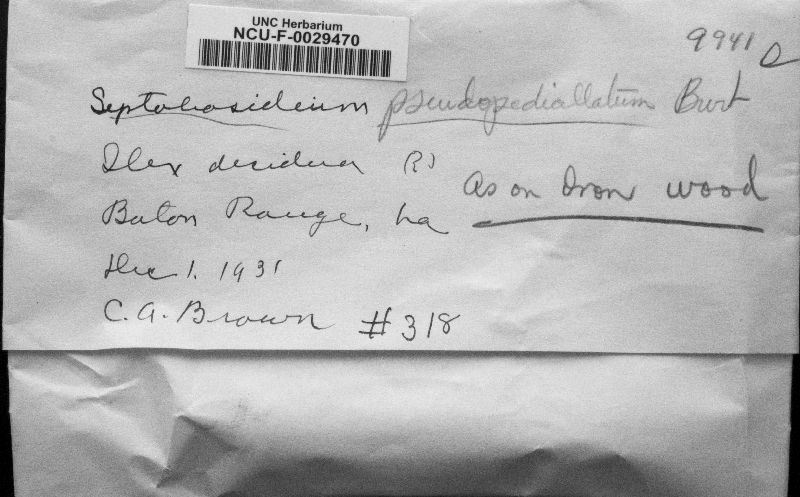 UNC Herbarium
NCU-F-0029470
9941 D
Septobasidium pseudopedicellatum Burt
Ilex decidua (?)
as on Iron wood
Baton Rouge, La
Dec 1. 1931
C. A. Brown #318